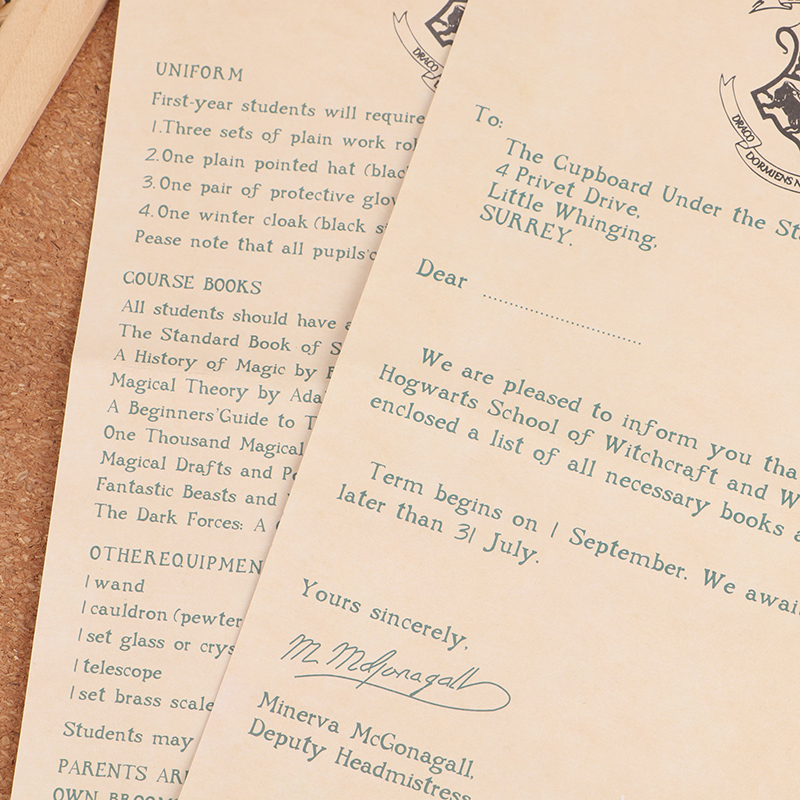 UNIFORM
First-year students will require
1.Three sets of plain work
2.One plain pointed hat
3.One pair of protective
4.One winter cloak (black
Pease note that all pupils'
COURSE BOOKS
All students should have a
The Standard Book of
A History of Magic by
Magical Theory by
A Beginners'Guide to
One Thousand Magical
Magical Drafts and
Fantastic Beasts and
The Dark Forces: A
OTHEREQUIPMEN
1 wand
1 cauldron (pewter
1 set glass or
1 telescope
1 set brass scale
Students may
PARENTS
OWN
DRACO
DRACO DORMIENS N
To:
The Cupboard Under the
4 Privet Drive,
Little Whinging,
SURREY.
Dear ..............................
We are pleased to inform you
Hogwarts School of Witchcraft and W
enclosed a list of all necessary books a
Term begins on 1 September. We
later than 31 July.
Yours sincerely,
M McGonagall
Minerva McGonagall,
Deputy Headmistress